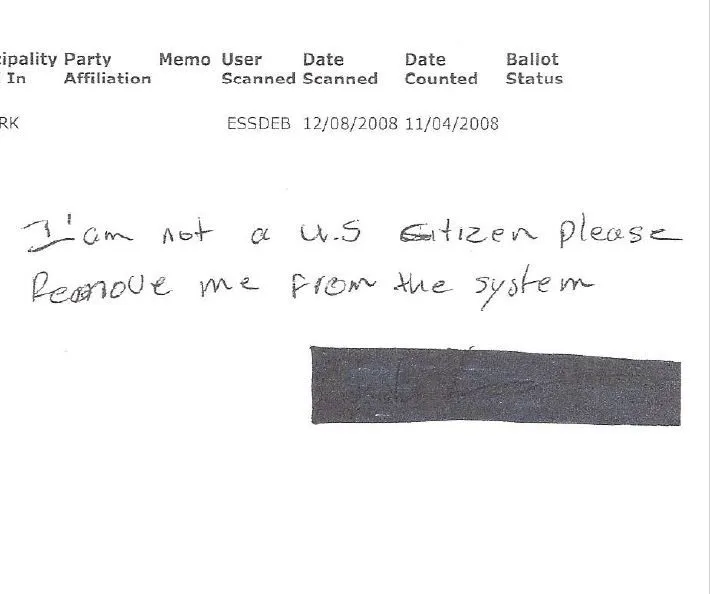 cipality Party Memo User Date Date Ballot
In Affiliation Scanned Scanned Counted Status
RK ESSDEB 12/08/2008 11/04/2008
I'am not a U.S Citizen please
Remove me from the system